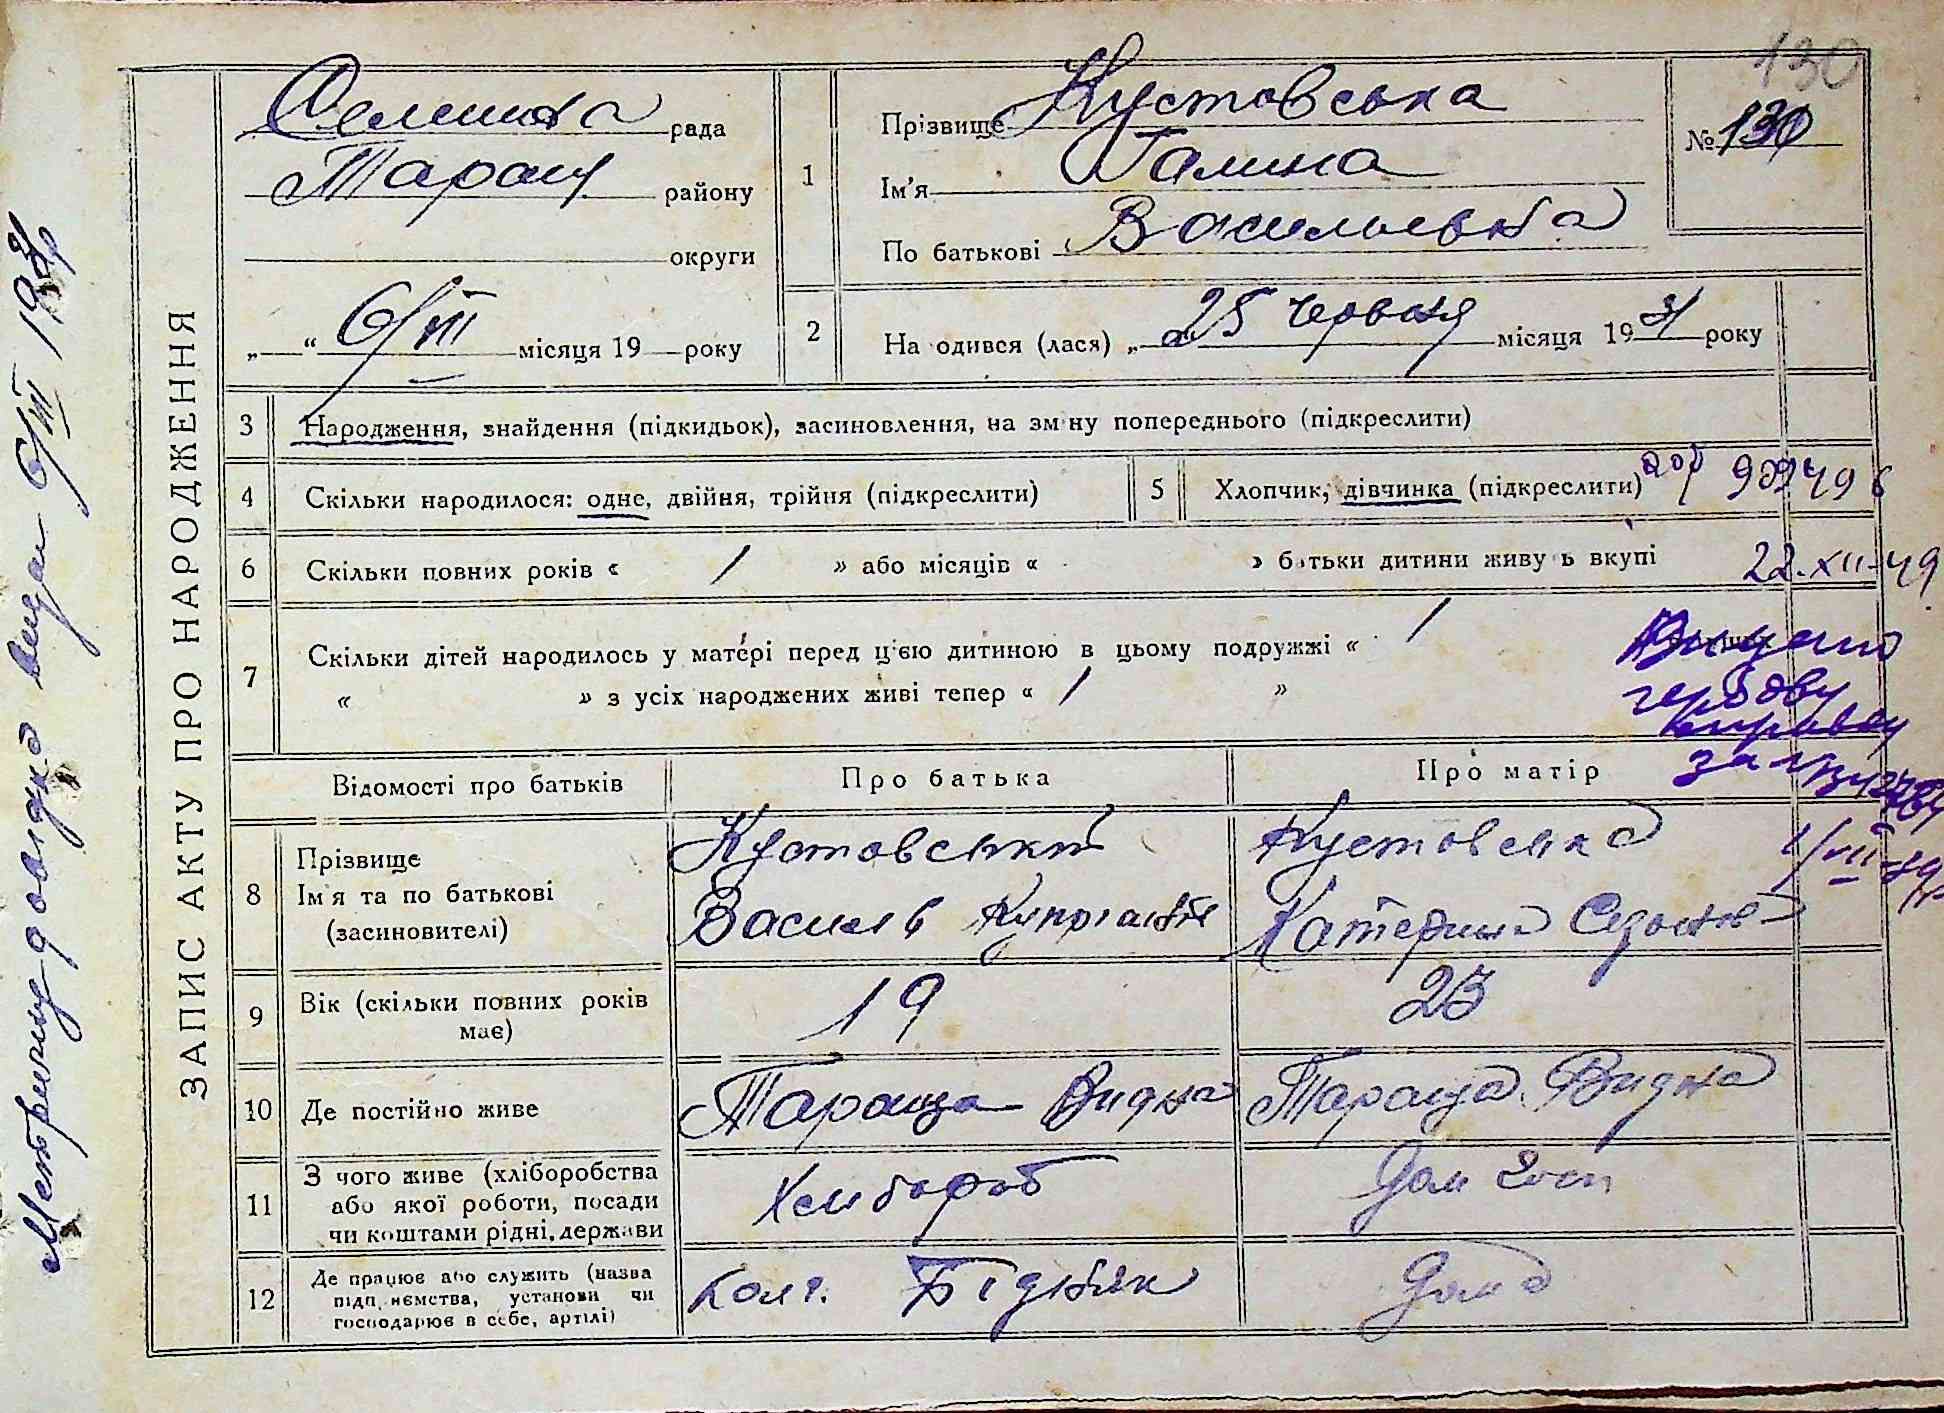 130
Селищна рада
Таращ. району
округи
„ “ 6/VII місяця 19 року
1
Прізвище Кустовська
Ім'я Галина
По батькові Васильевна
№ 130
2
На одився (лася) „ 25 червня місяця 1931 року
3 Народження, знайдення (підкидьок), засиновлення, на зм ну попереднього (підкреслити)
4 Скільки народилося: одне, двійня, трійня (підкреслити)
5 Хлопчик, дівчинка (підкреслити)
6 Скільки повних років « / » або місяців « » батьки дитини живу ь вкупі
22.XII-49
7 Скільки дітей народилось у матері перед ц'єю дитиною в цьому подружжі « /
« » з усіх народжених живі тепер « / »
Видано
гербову
Відомості про батьків Про батька Про матір
8 Прізвище
Ім'я та по батькові
(засиновителі)
Кустовський
Василь
Кустовська
Катерина
9 Вік (скільки повних років
має)
19
23
10 Де постійно живе
Тараща
Тараща
11 З чого живе (хліборобства
або якої роботи, посади
чи коштами рідні, держави
Хлибороб
Дом Госп
12 Де працює або служить (назва
підп иємства, установи чи
господарює в себе, артілі)
Колг. Бідняк
Дома
ЗАПИС АКТУ ПРО НАРОДЖЕННЯ
Метричну довідку видан 6/VII 1931р